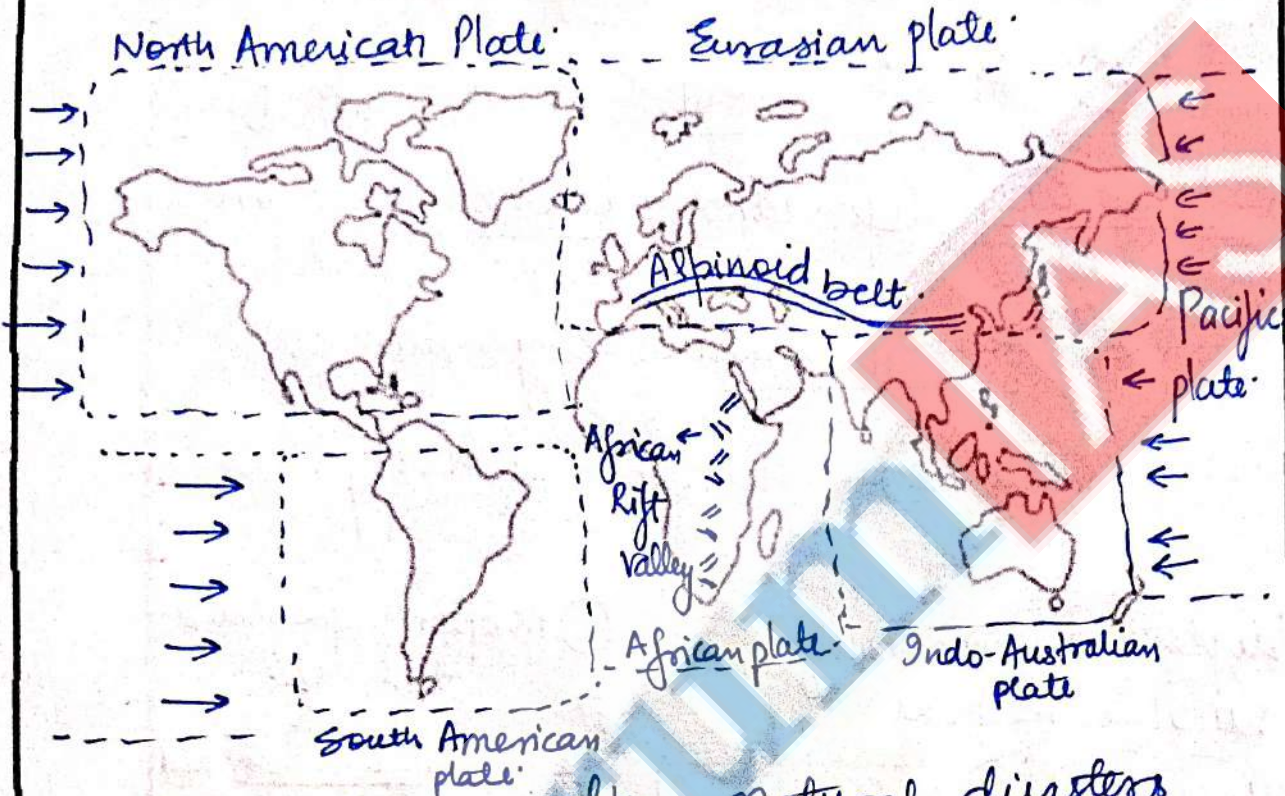 North American Plate.
Eurasian plate.
Alpinoid belt.
Pacific
plate.
African
Rift
Valley
African plate.
Indo-Australian
plate
South American
plate.
Natural disasters
IAS
rum